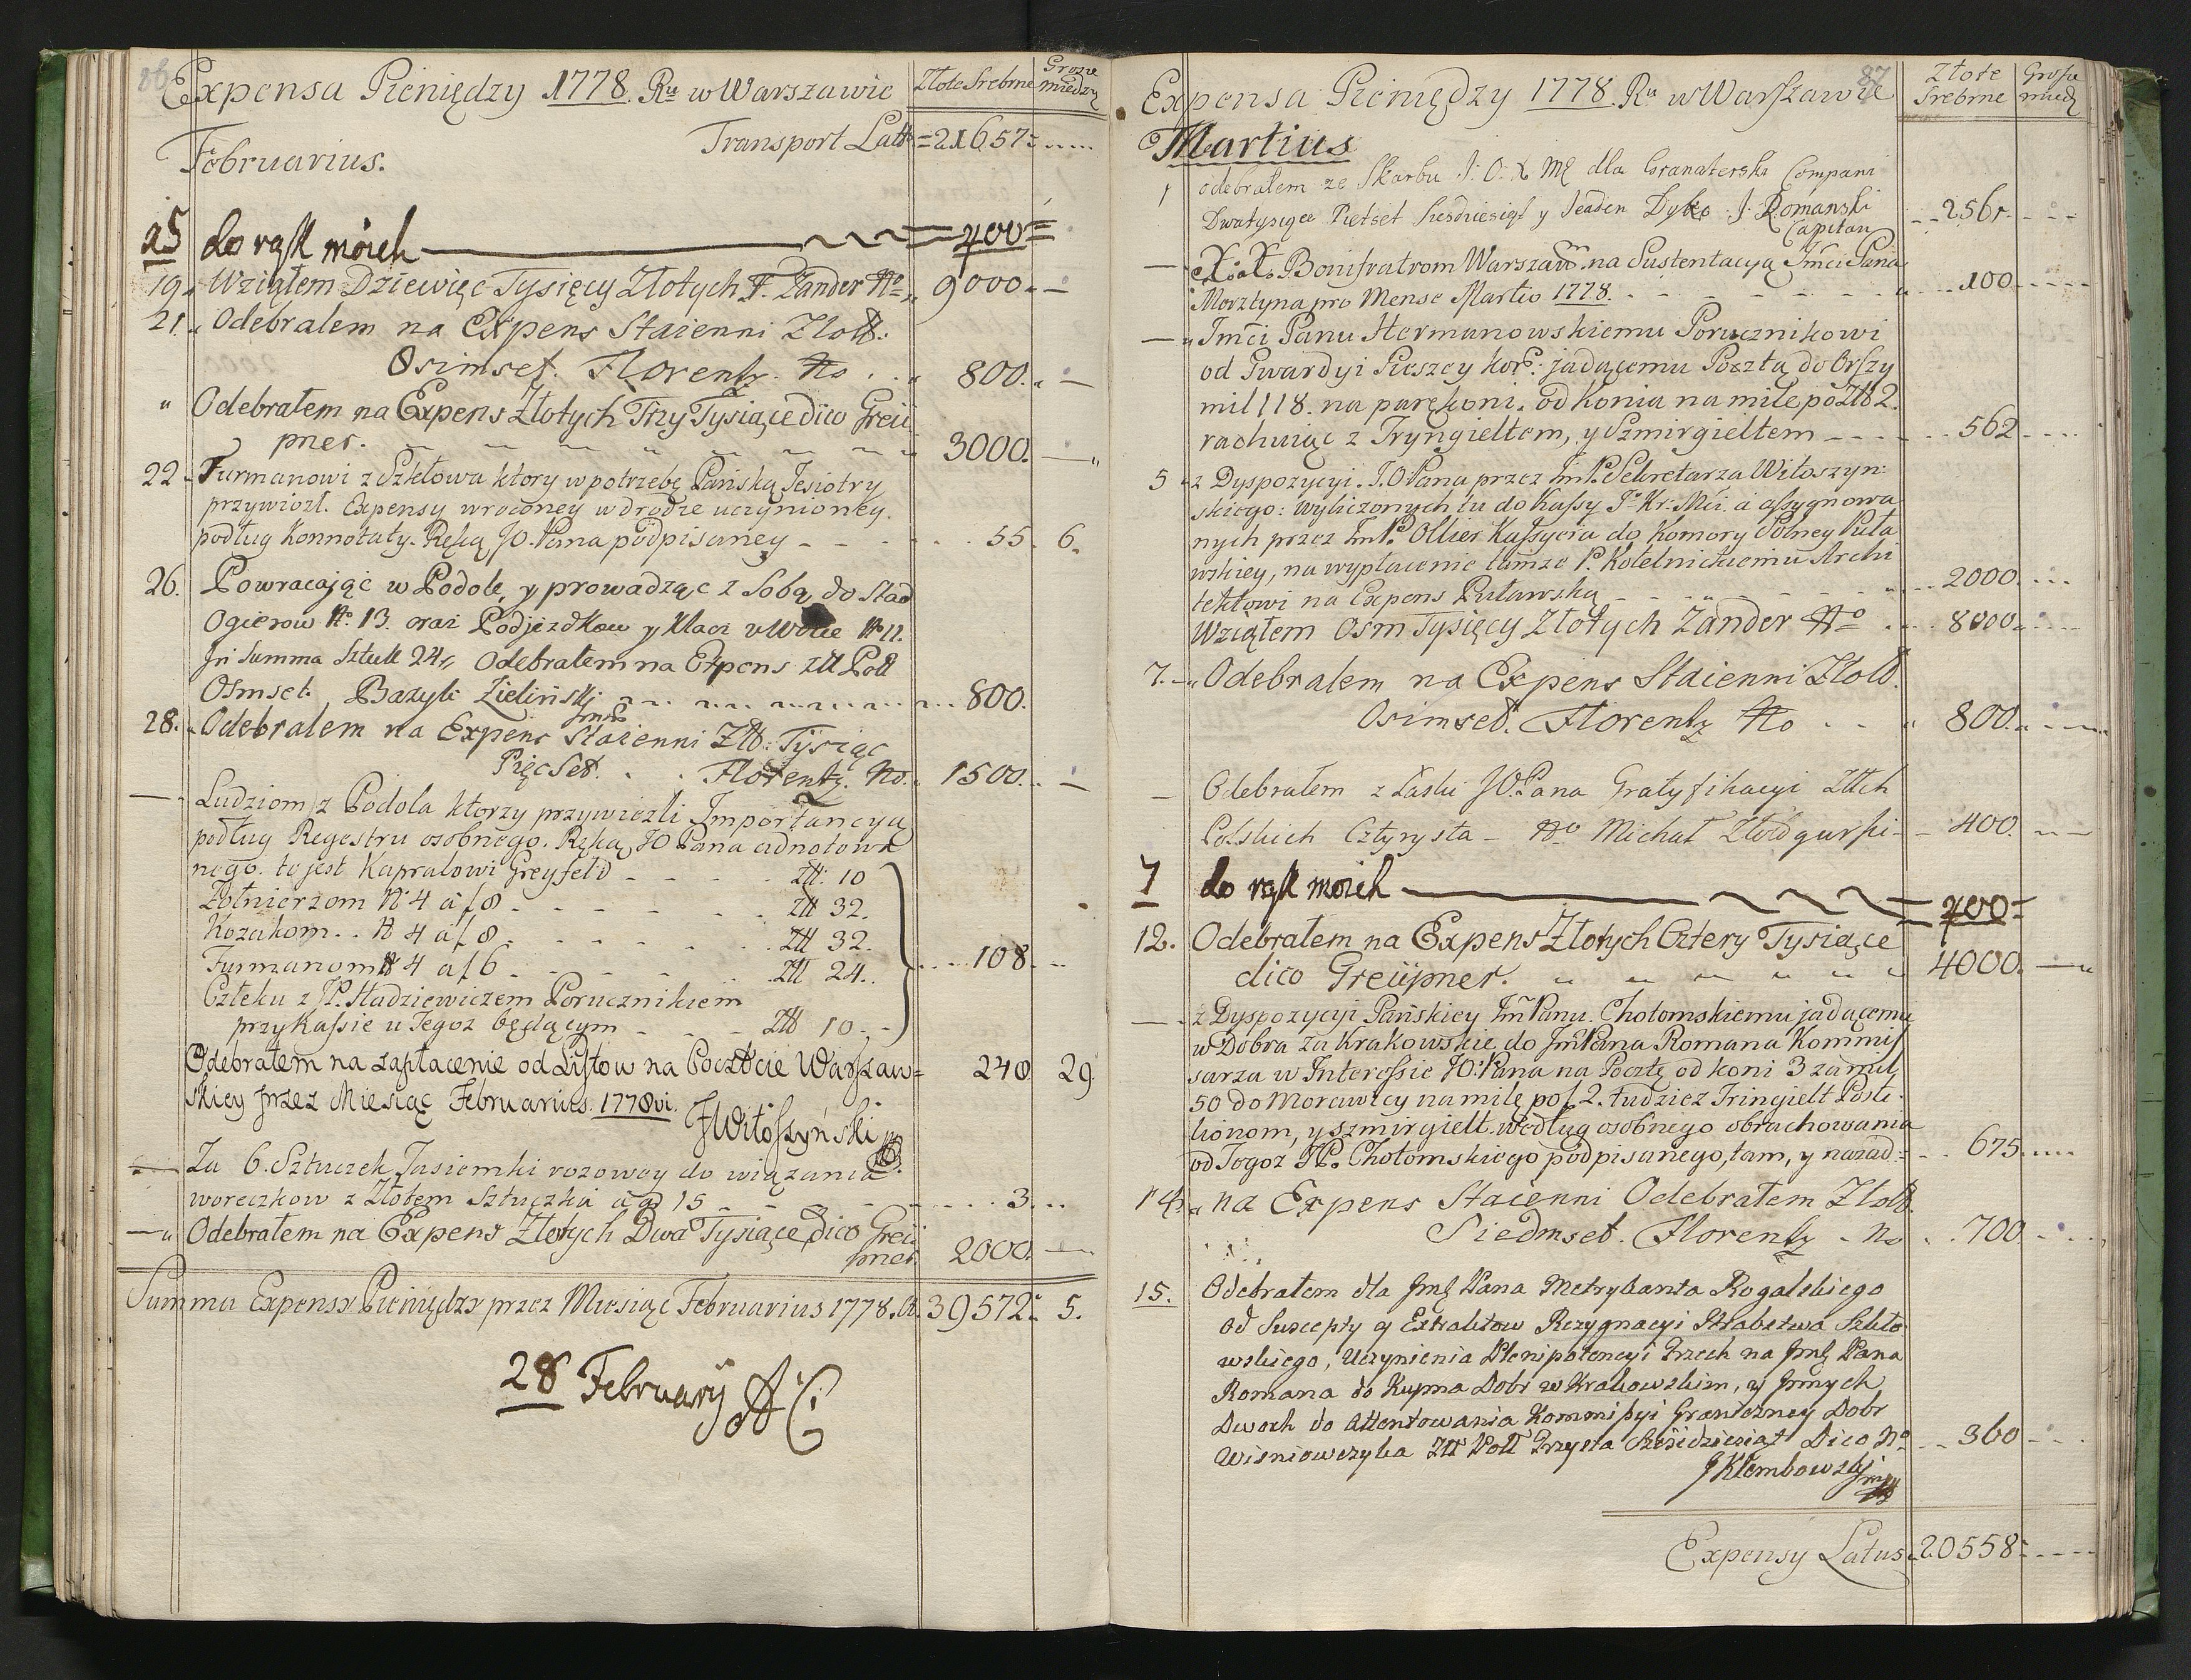 86
Expensa Pieniędzy 1778. Ru w Warszawie
Złote Srebrne
Grosze miedzą
Februarius.
Transport Latt = 21657=
25 do rąk moich = 400=
19. Wziąłem Dziewięc Tysięcy Złotych F. Zander 9000. —
21. Odebralem na Expens Staienni Zlott:
Osimset. Florentz. No 800. —
" Odebrałem na Expens Złotych Trzy Tysiące dico Greü
pner. 3000. —
22 Furmanowi z Szkłowa ktory w potrzebę Pańską Jesiotry
przywiozł. Expensy wroconey w drodze uczynioney.
podług Konnotaty. Ręką JO. Pana podpisaney 55. 6.
26. Powracaiąc w Podole, y prowadząc z Sobą do Stad
Ogierow No. 13. oraz Podjezdkow y Klacz No 11.
In Summa Sztuk 24, Odebrałem na Expens złt Poll
Osmset. Bazyli Zieliński 800.
28. Odebralem na Expens Staienni Zltt: Tysiąc
PięcSet. Florentz. No. 1500. —
— Ludziom z Podola ktorzy przywiezli Importancyą
podług Regestru osobnego. Ręką JO Pana adnotowa
nego. to jest Kapralowi Greyfeld Złł: 10
Żołnierzom No 4 a f 8 Złł 32.
Kozakom No 4 a f 8 Złł 32.
Furmanom No 4 a f 6 Złł 24.
108.
Człeku z JP. Hadziewiczem Porucznikiem
przy Kassie u Tegoz będącym Złł 10
Odebrałem na zapłacenie od Listow na Poczcie Warszaw=
240 29.
skiey przez Miesiąc Februarius. 1778vi.
JWitoszyński
Za 6. Sztuczek Tasiemki rozowey do wiązania
woreczkow z Złotem Sztuczka a gr 15 3.
" Odebrałem na Expens Złotych Dwa Tysiące dico Greü
pner. 2000. —
Summa Expensy Pieniędzy przez Miesiąc Februarius 1778. 39572. 5.
28 February AC
87
Expensa Pieniędzy 1778. Ru w Warszawie
Złote Srebrne
Grosze miedz
Martius
1 odebrałem ze Skarbu J: O: X Mę dla Granaterski Compani
Dwatysiące Pietset Szesdziesiąt y Jeaden Dyko J: Romanski 2561.
Capitan
— X.X. Bonifratrom Warszaw. na Sustentacyą Jmći Pana
Morztyna pro Mense Martio 1778. 100
— Jmći Panu Hermanowskiemu Porucznikowi
od Gwardyi Pieszey Kor: jadącemu Pocztą do Orszy
mil 118. na parękoni. od Konia na milę po Złł 2.
rachuiąc z Tryngieltem, y Szmirgieltem 562
5 z Dyspozycyi. J.O Pana przez JmP. Sekretarza Witoszyn:
skiego: wyliczonych tu do Kassy J. Kr: Mći. a assygnowa
nych przez JmP. Ollier Kassyera do Komory Polney Puła
wskiey, na wypłacenie tamze P. Kotelnickiemu Archi
tektowi na Expens Puławską 2000.
Wziąłem Osm Tysięcy Złotych Zander 8000.
7. Odebralem na Expens Staienni Zlott.
Osimset. Florentz No 800.
— Odebrałem z Łaski JO.Pana Gratyfikacyi Złłch
Polskich Cztyrysta Michał Złotogurski 400.
7 do rąk moich = 400=
12. Odebrałem na Expens Złotych Cztery Tysiące
dico Greüpner. 4000. —
— z Dyspozycyi Pańskiey Jm Panu. Chotomskiemu jadącemu
w Dobra za Krakowskie do Jm Pana Romana Kommis
sarza w Interessie JO.Pana na Pocztę od koni 3 za mil
50 do Morawicy na milę po f. 2. tudziez Tringielt Posti
lionom, y szmirgielt. według osobnego obrachowania
od Tegoz JP. Chotomskiego podpisanego, tam, y nazad 675.
14. na Expens Staienni Odebrałem Zlott.
Siedmset. Florentz No 700
15. Odebrałem dla Jmę Pana Metrykanta Rogalskiego
od Suscepty y Extraktow Rezygnacyi Hrabstwa Szkło
wskiego, Uczynienia Plenipotencyi Trzech na Jmę Pana
Romana do Kupna Dobr w Krakowskim, y Jnnych
Dwoch do Attentowania Kommissyi Graniczney Dobr
Wisniowczyka Złł Poll Trzysta Sześćdziesiąt Dico No 360
JKłembowski
Expensy Latus 20558=